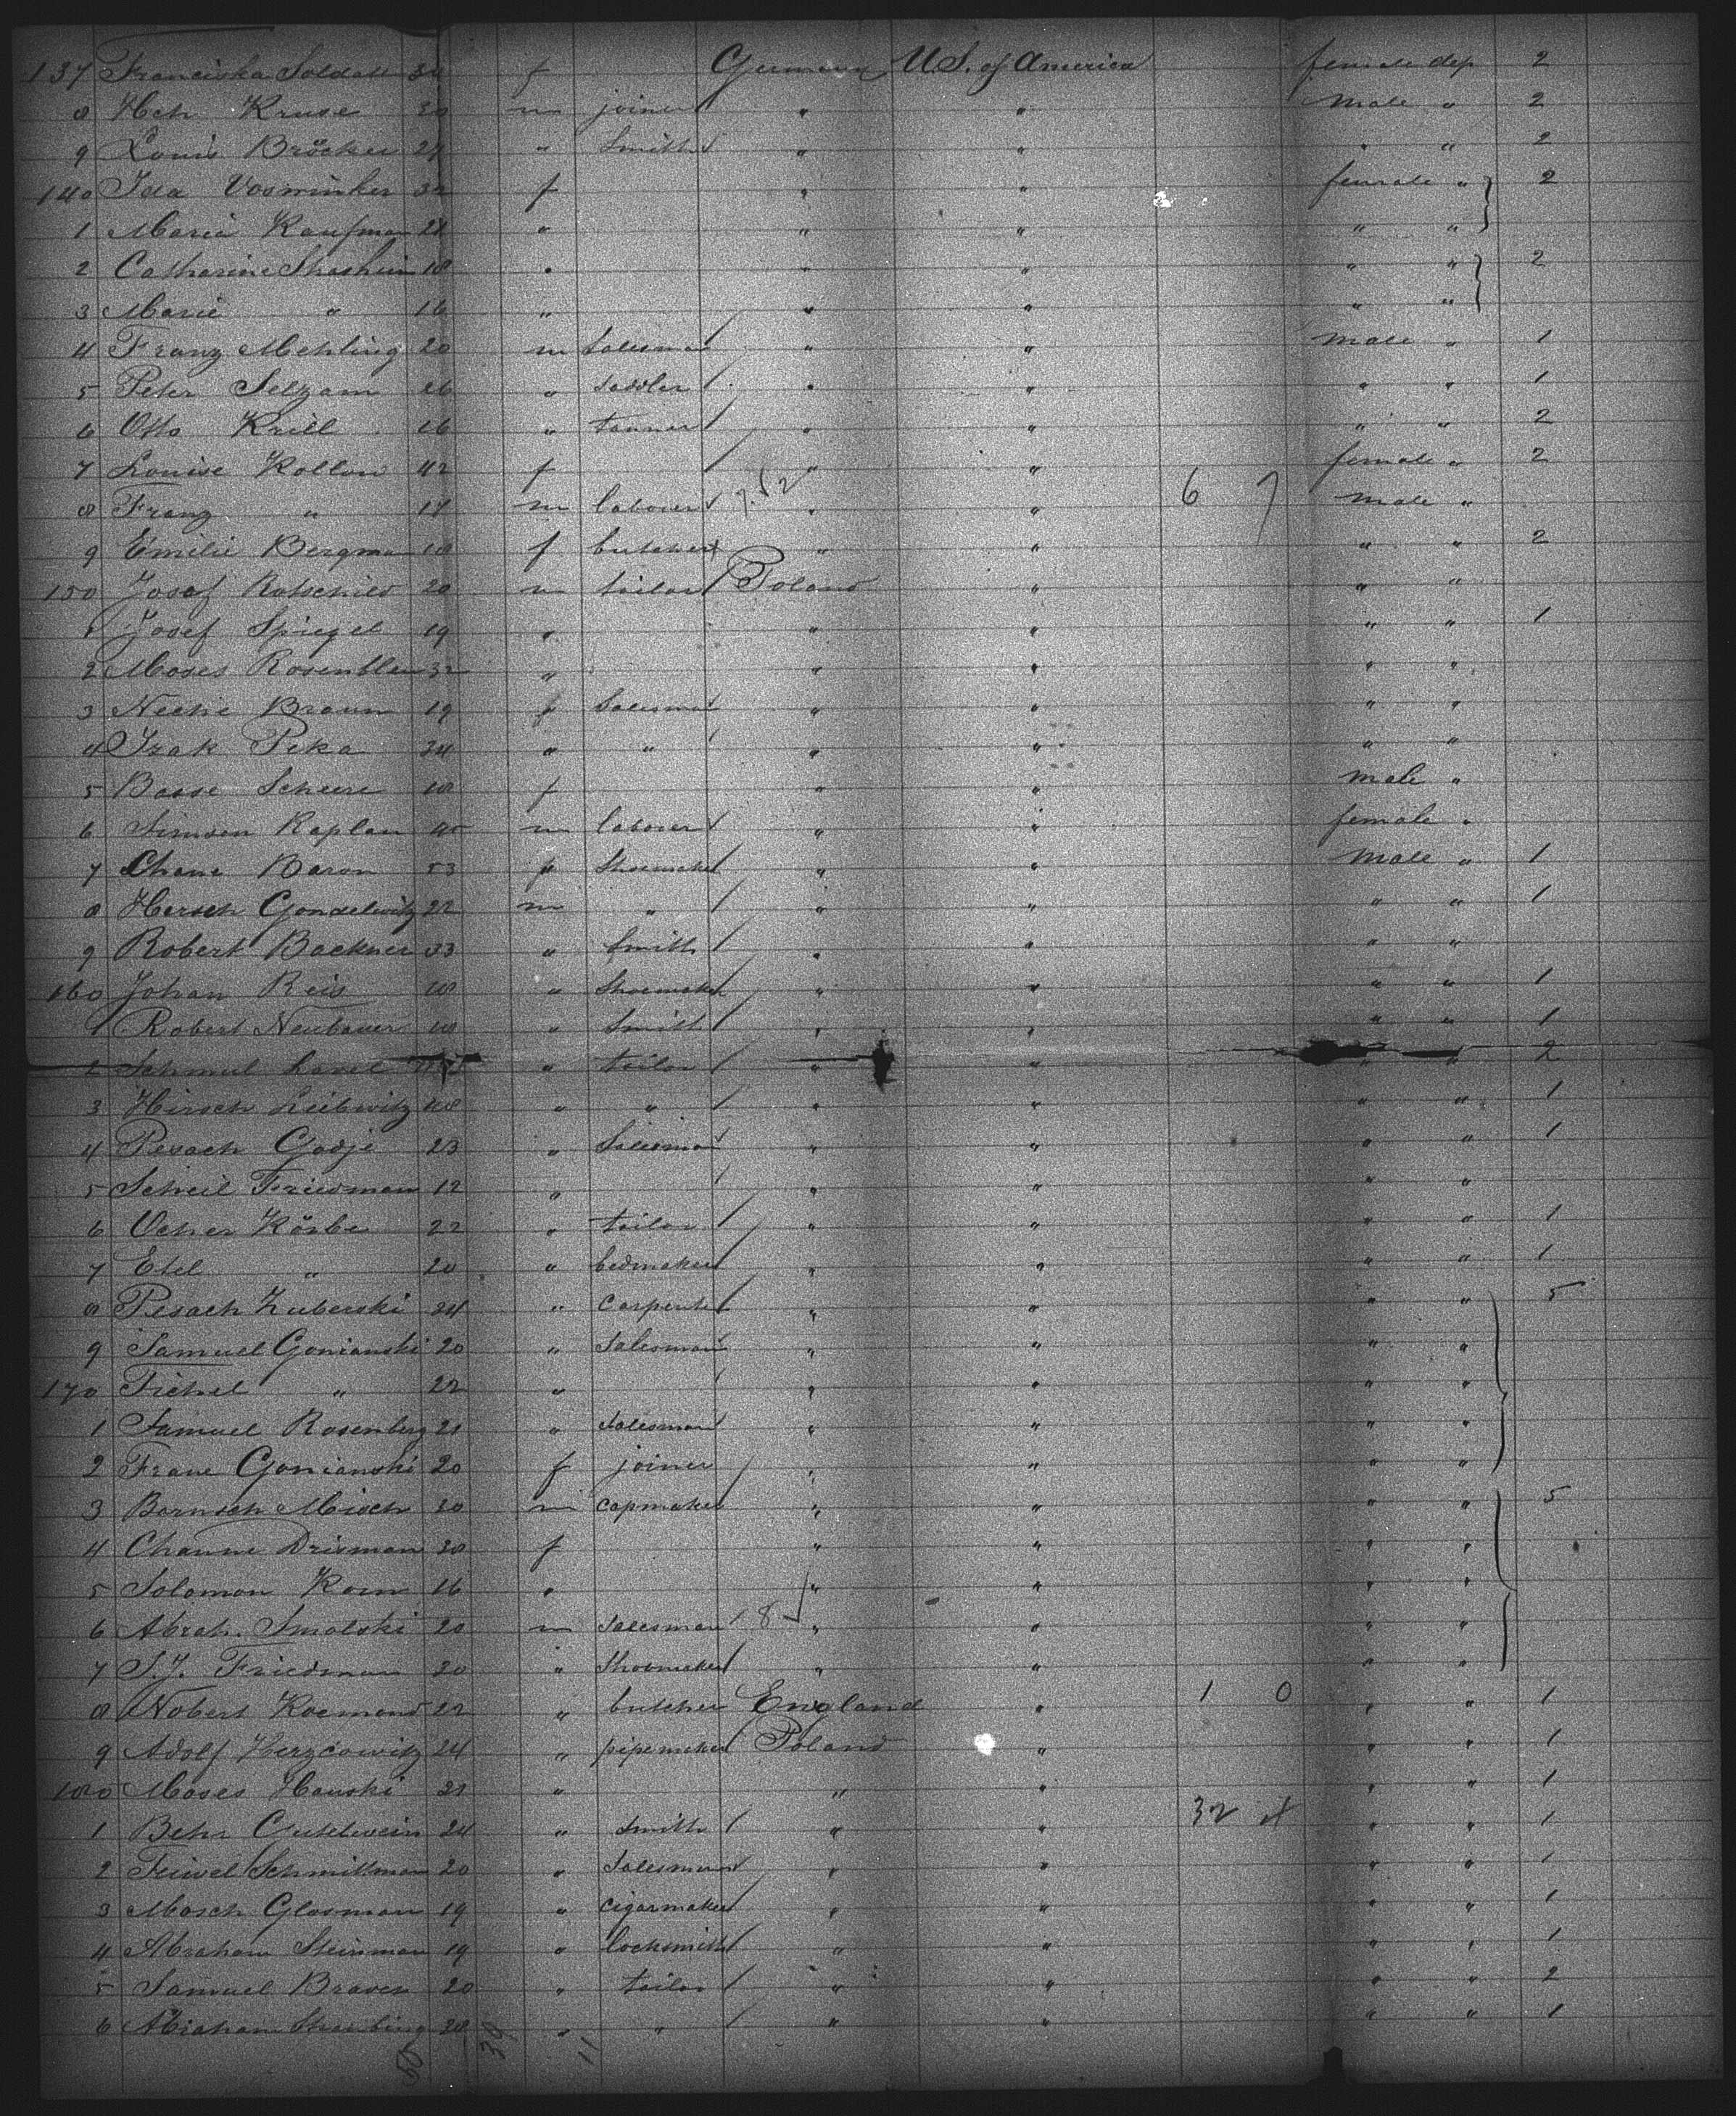 137 Franciska Soldat 30 f Germany U.S. of America female dep 2
8 Hch Kruse 30 m joiner " " male " 2
9 Louis Bröcker 27 " Smith " " " " 2
140 Ida Vosminker 32 f " " female " 2
1 Maria Kaufman 28 " " " " "
2 Catharine 18 " " " " " 2
3 Marie " 16 " " " " "
4 Franz Mehling 20 m Salesman " " male " 1
5 Peter Selzam 26 " saddler " " " " 1
6 Otto Krill 26 " tanner " " " " 2
7 Louise Kollow 42 f " " female " 2
8 Franz " m laborer " " 6 7 male "
9 Emilie Bergman 18 f butcher " " " " 2
150 Josef Rotschild 20 m tailor Poland " " "
1 Josef Spiegel 19 " " " " " 1
2 Moses Rosenblum 32 " " " " "
3 Nechi Braun 19 f Salesman " " " "
4 Izak Peka 34 " " " " " "
5 Basse Scheere 18 f " " male "
6 Simson Kaplan 40 m laborer " " female "
7 Chane Baron 53 f Shoemaker " " male " 1
8 Hersch Gondelwitz 22 m " " " " " 1
9 Robert Backner 33 " Smith " " " "
160 Johan Reis 18 " Shoemaker " " " " 1
1 Robert Neubauer 18 " Smith " " " " 1
2 Schmul " tailor " " " 2
3 Hirsch Leibwitz 48 " " " " " " 1
4 Pesach Godje 23 " Salesman " " " " 1
5 Scheil Friedman 12 " " " " "
6 Ocher Körbe 22 " tailor " " " " 1
7 Etel " 20 " bedmaker " " " " 1
8 Pesach Zuberski 24 " Carpenter " " " " 5
9 Samuel Gonianski 20 " Salesman " " " "
170 Fichel " 22 " " " " "
1 Samuel Rosenberg 21 " Salesman " " " "
2 Frane Gonianski 20 f joiner " " " "
3 Bornsch Misch 30 m capmaker " " " " 5
4 Channe Drisman 30 f " " " "
5 Solomon Korn 16 " " " " "
6 Abrah. Smolski 20 m Salesman 8 " " " "
7 S.J. Friedman 20 " Shoemaker " " " "
8 Nobert Koemond 22 " butcher England " 1 0 " " 1
9 Adolf Herzcowitz 24 " pipemaker Poland " " " 1
180 Moses Hauski 21 " " " " " 1
1 Behr Gutelwein 24 " Smith " " 32 " " 1
2 Feiwel Schmittman 20 " Salesman " " " " 1
3 Mosch Glosman 19 " Cigarmaker " " " " 1
4 Abraham Steinman 19 " locksmith " " " " 1
5 Samuel Braver 20 " tailor " " " " 2
6 Abraham 20 " " " " " " 1
39 11